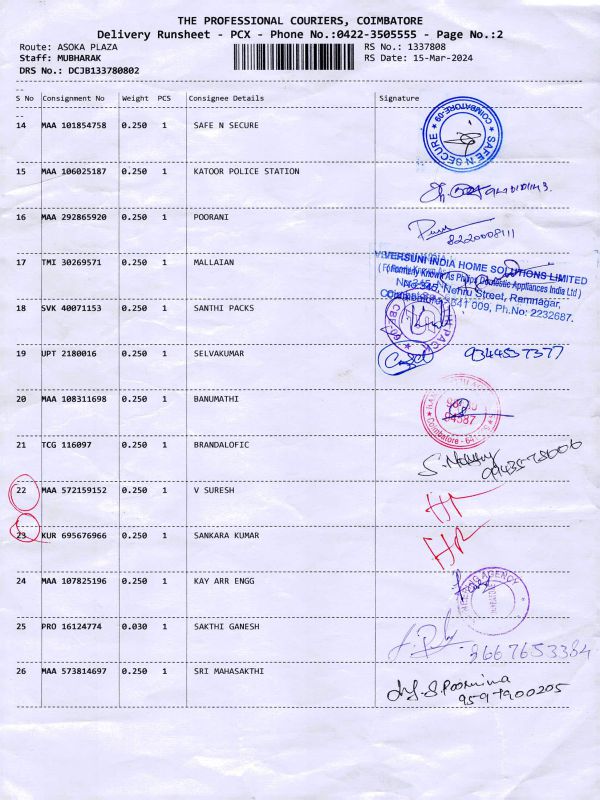 THE PROFESSIONAL COURIERS, COIMBATORE
Delivery Runsheet - PCX - Phone No.:0422-3505555 - Page No.:2
Route: ASOKA PLAZA RS No.: 1337808
Staff: MUBHARAK RS Date: 15-Mar-2024
DRS No.: DCJB133780802
S No Consignment No Weight PCS Consignee Details Signature
14 MAA 101854758 0.250 1 SAFE N SECURE
SAFE N SECURE COIMBATORE-09
15 MAA 106025187 0.250 1 KATOOR POLICE STATION
16 MAA 292865920 0.250 1 POORANI
8220008111
17 TMI 30269571 0.250 1 MALLAIAN
VERSUNI INDIA HOME SOLUTIONS LIMITED
(Formerly Known As Philips Domestic Appliances India Ltd)
No: 345, Nehru Street, Ramnagar,
Coimbatore - 641 009, Ph.No: 2232687.
18 SVK 40071153 0.250 1 SANTHI PACKS
19 UPT 2180016 0.250 1 SELVAKUMAR
9344537377
20 MAA 108311698 0.250 1 BANUMATHI
Coimbatore - 64
21 TCG 116097 0.250 1 BRANDALOFIC
22 MAA 572159152 0.250 1 V SURESH
23 KUR 695676966 0.250 1 SANKARA KUMAR
24 MAA 107825196 0.250 1 KAY ARR ENGG
AGENCY
25 PRO 16124774 0.030 1 SAKTHI GANESH
8667653384
26 MAA 573814697 0.250 1 SRI MAHASAKTHI
S. Poornima
9597900205